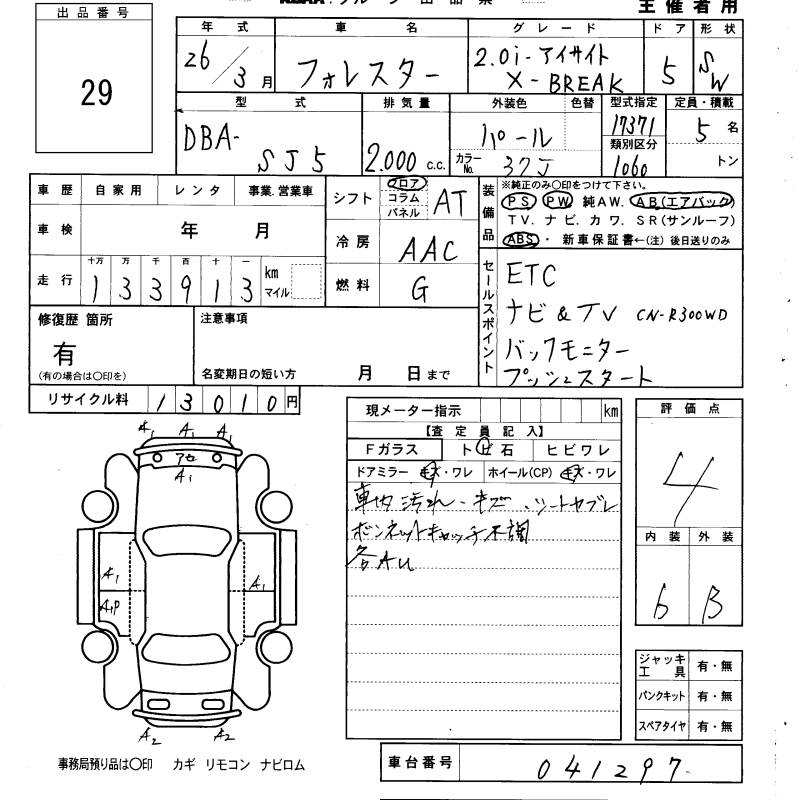 主催者用
出品番号
29
年式 車名 グレード ドア 形状
26/3月 フォレスター 2.0i-アイサイト X-BREAK 5 SW
型式 排気量 外装色 色替 型式指定 定員・積載
DBA-SJ5 2.000c.c. パール 17371 5名
カラーNo. 37J 類別区分 1060 トン
車歴 自家用 レンタ 事業.営業車
車検 年 月
走行 十万 万 千 百 十 一
133913 km マイル
シフト フロア コラム パネル AT
冷房 AAC
燃料 G
装備品
※純正のみ〇印をつけて下さい。
PS PW 純AW. AB(エアバック)
TV. ナビ. カワ. SR(サンルーフ)
ABS・新車保証書←(注)後日送りのみ
セールスポイント
ETC
ナビ&TV CN-R300WD
バックモニター
プッシュスタート
修復歴 箇所
有
(有の場合は〇印を)
注意事項
名変期日の短い方 月 日まで
リサイクル料 13010円
現メーター指示 km
【査定員記入】
Fガラス トビ石 ヒビワレ
ドアミラー キズ・ワレ ホイール(CP) キズ・ワレ
車内汚れ・キズ・シートヤブレ
ボンネットキャッチ不調
各AU
評価点
4
内装 外装
6 B
A1 A1 A1
アセ
A1
A1 A1
A1P
A2 A2
ジャッキ工具 有・無
パンクキット 有・無
スペアタイヤ 有・無
事務局預り品は〇印 カギ リモコン ナビロム
車台番号 041297